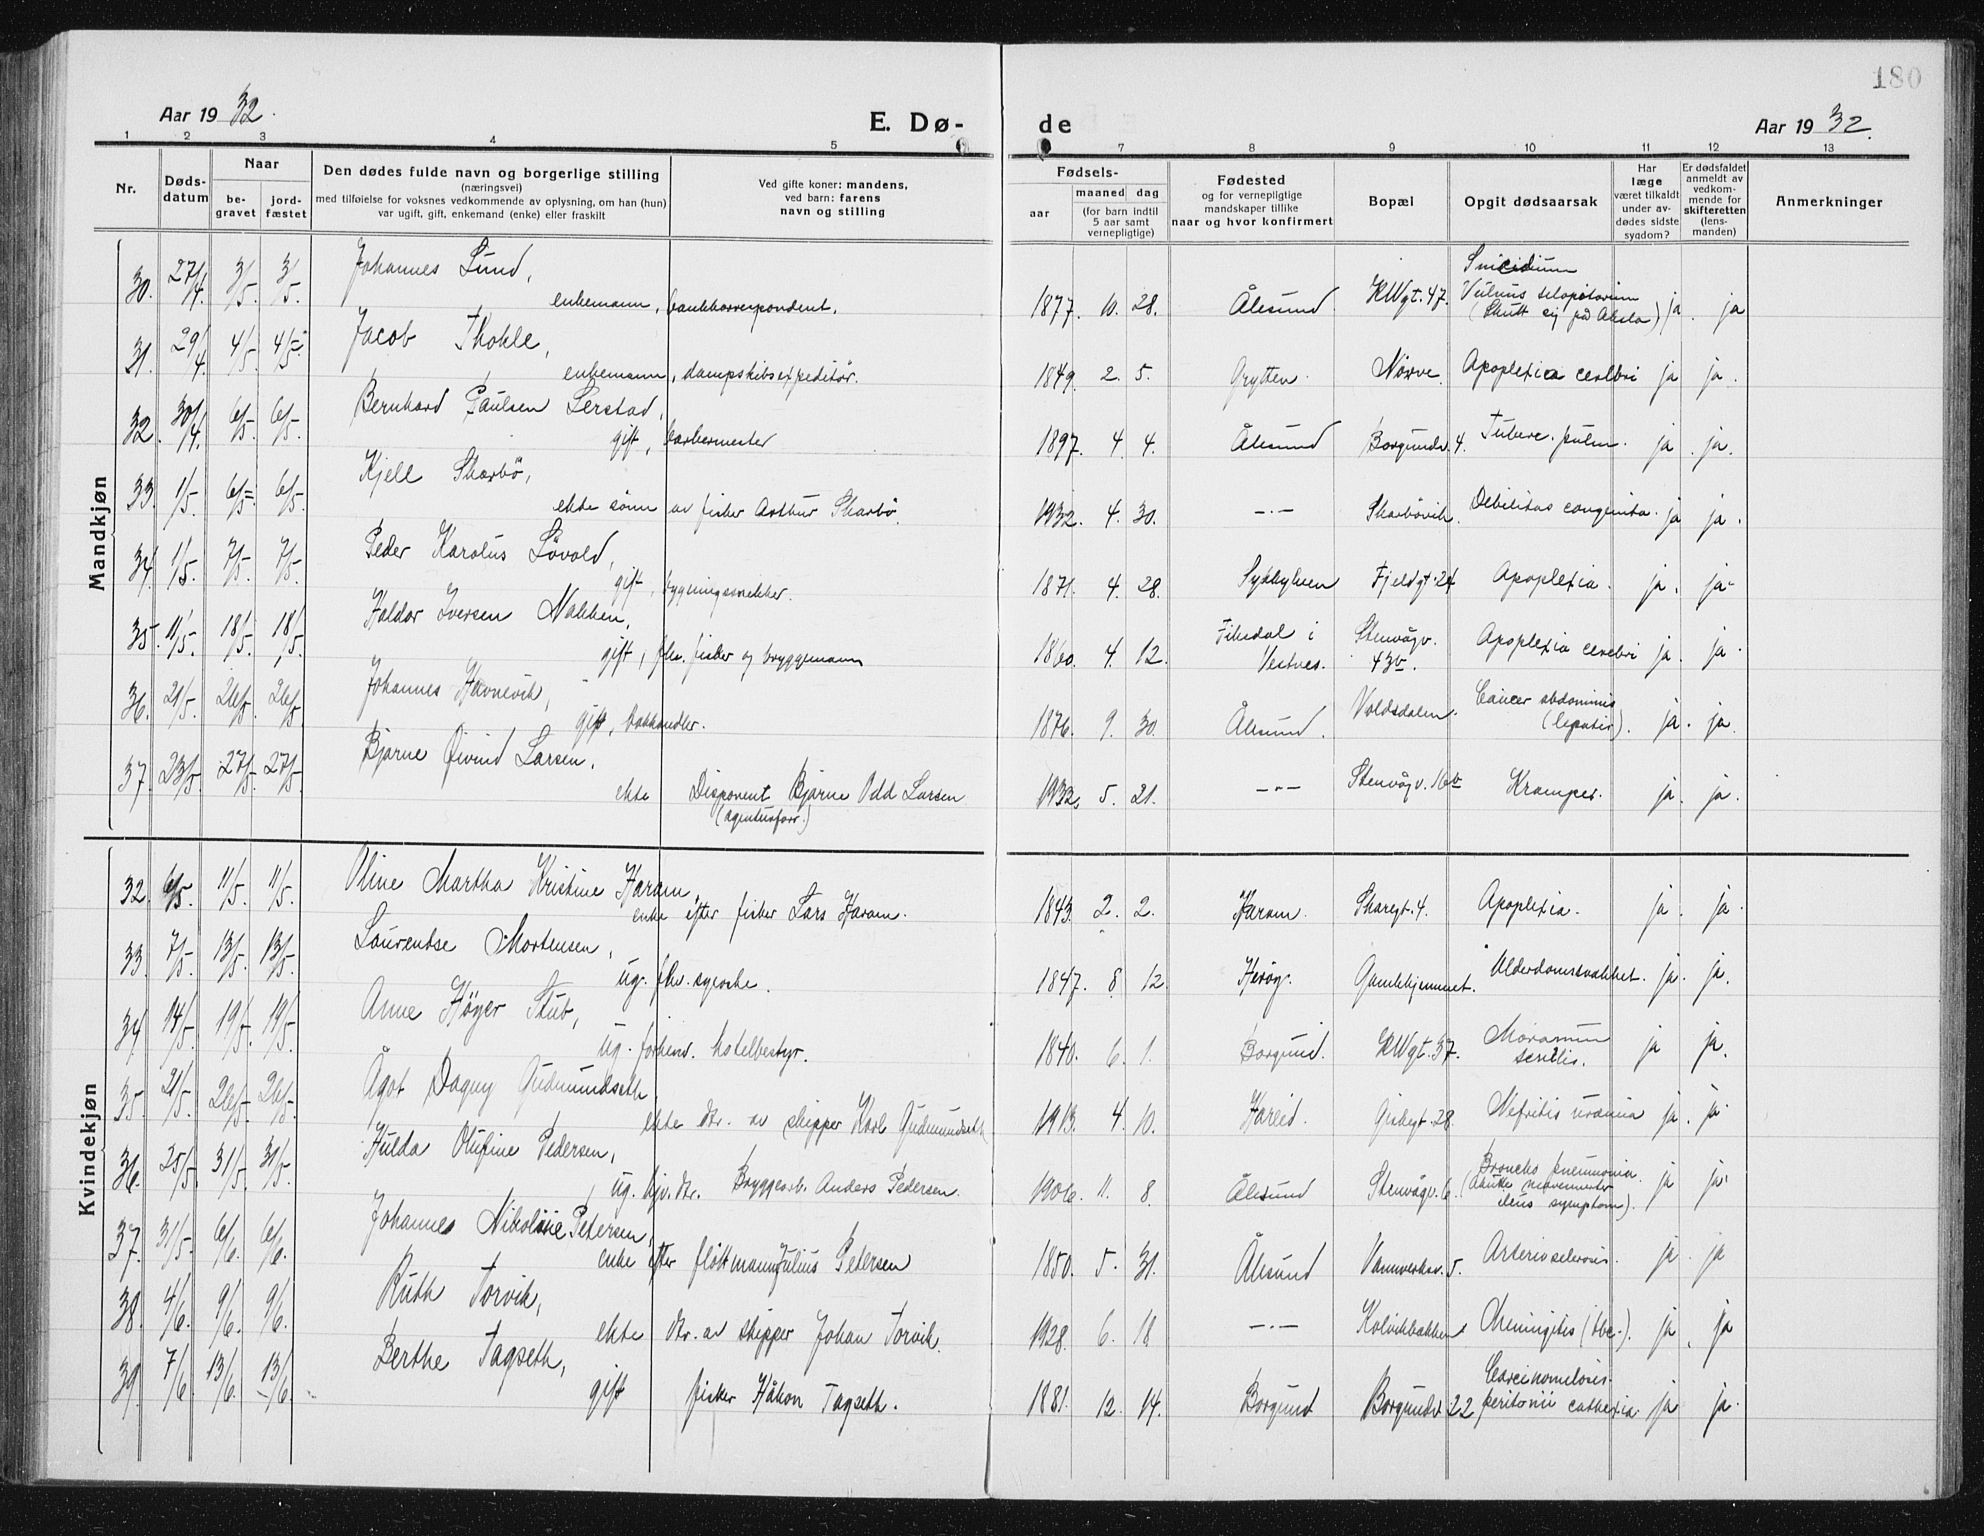 180
Aar 1932.
E. Dø-
de
Aar 1932.
1 2 3 4 5 7 8 9 10 11 12 13
Nr.
Døds-
datum
Naar
be-
gravet
jord-
fæstet
Den dødes fulde navn og borgerlige stilling
(næringsvei)
med tilføielse for voksnes vedkommende av oplysning, om han (hun)
var ugift, gift, enkemand (enke) eller fraskilt
Ved gifte koner: mandens,
ved barn: farens
navn og stilling
Fødsels-
aar
maaned dag
(for barn indtil
5 aar samt
vernepligtige)
Fødested
og for vernepligtige
mandskaper tillike
naar og hvor konfirmert
Bopæl
Opgit dødsaarsak
Har
læge
været tilkaldt
under av-
dødes sidste
sygdom?
Er dødsfaldet
anmeldt av
vedkom-
mende for
skifteretten
(lens-
manden)
Anmerkninger
Mandkjøn
30. 27/4. 3/5. 3/5. Johannes Lund,
enkemann, bankkorrespondent. 1877. 10. 28. Ålesund. KWgt. 47. Suicidium
Vulnus sclopetarium
(Skutt sig på Aksla) ja. ja
31. 29/4. 4/5. 4/5. Jacob Thokle,
enkemann, dampskibsexpeditör. 1849. 2. 5. Grytten. Nörve. Apoplexia cerebri ja ja.
32. 30/4. 6/5. 6/5. Bernhard Paulsen Lerstad,
gift, barbermester 1897. 4. 4. Ålesund Borgundv. 4. Tuberc. pulm. ja. ja.
33. 1/5. 6/5. 6/5. Kjell Skarbö,
ekte sönn av fisker Arthur Skarbö. 1932. 4. 30. —·— Skarbövik. Debilitas congenita. ja ja.
34. 1/5. 7/5. 7/5. Peder Karolus Lövold,
gift, bygningssnekker. 1871. 4. 28. Sykkylven Fjeldgt. 24 Apoplexia. ja. ja
35. 11/5. 18/5. 18/5. Haldor Iversen Nakken,
gift, fhv. fisker og bryggemann 1860. 4. 12. Fiksdal i
Vestnes. Stenvågv.
43b. Apoplexia cerebri ja. ja
36. 21/5. 26/5. 26/5. Johannes Havnevik,
gift, bokhandler. 1876. 9. 30. Ålesund. Voldsdalen. Cancer abdominis
(hepatis). ja. ja.
37. 23/5. 27/5. 27/5. Bjarne Öivind Larsen,
ekte Disponent Bjarne Odd Larsen
(agenturforr.) 1932. 5. 21. —·— Stenvågv. 16b Kramper. ja. ja.
Kvindekjøn
32. 6/5. 11/5. 11/5. Oline Martha Kristine Haram,
enke efter fisker Lars Haram. 1843. 2. 2. Haram. Skaregt. 4. Apoplexia. ja. ja.
33. 7/5. 13/5. 13/5. Laurentse Mortensen,
ug. fhv. syerske. 1847. 8 12. Heröy. Gamlehjemmet. Alderdomssvakhet. ja. ja.
34 14/5. 19/5. 19/5. Anne Höyer Stub,
ug. forhenv. hotelbestyr. 1840. 6. 1. Borgund. KWgt. 37. Marasmus
senilis. ja ja.
35. 21/5. 26/5. 26/5. Ågot Dagny Gudmundseth
ekte dtr. av skipper Karl Gudmundseth 1913. 4. 10. Hareid. 28. Nefritis uræmia ja. ja.
36. 25/5. 31/5. 31/5. Hulda Olufine Pedersen,
ug. hjv. dtr. Bryggearb. Anders Pedersen. 1906. 11. 8. Ålesund Stenvågv. 6. Broncho pneumonia.
(Akutte
ileus symptom). ja ja.
37. 31/5. 6/6. 6/6. Johanne Nikoline Petersen,
enke efter flöttmann Julius Petersen 1850. 5. 31. Ålesund Vannverksv. 5. Arteriosclerosis. ja. ja
38. 4/6. 9/6. 9/6. Ruth Torvik,
ekte dtr. av skipper Johan Torvik. 1928. 6. 18 —·— Kolvikbakken Meningitis (tbc.). ja. ja
39. 7/6. 13/6. 13/6. Berthe Tagseth,
gift fisker Håkon Tagseth. 1881. 12. 14. Borgund Borgundv. 22 Carcinomatosis
peritonii cachexia. ja. ja.